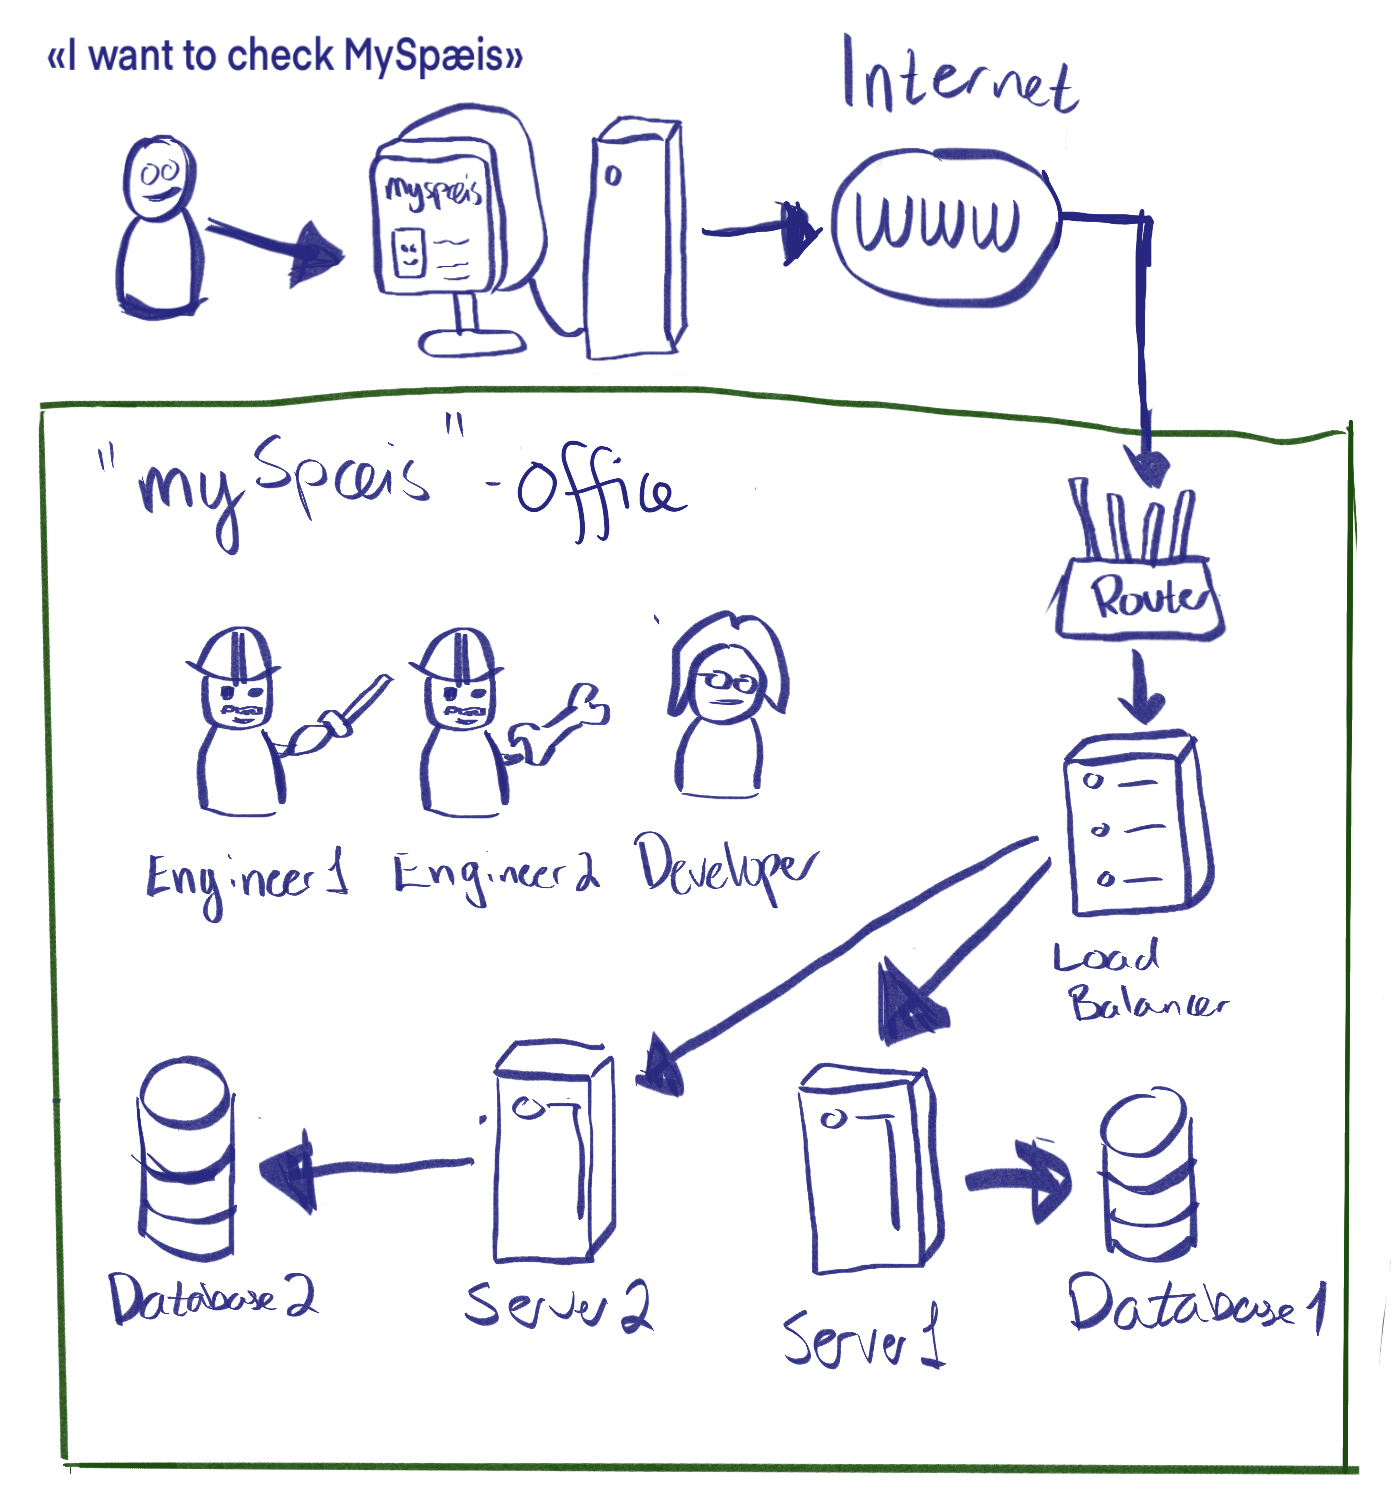 «I want to check MySpæis»
Internet
myspæis
WWW
"mySpæis" - office
Router
Engineer 1
Engineer 2
Developer
Load
Balancer
Database 2
Server 2
Server 1
Database 1